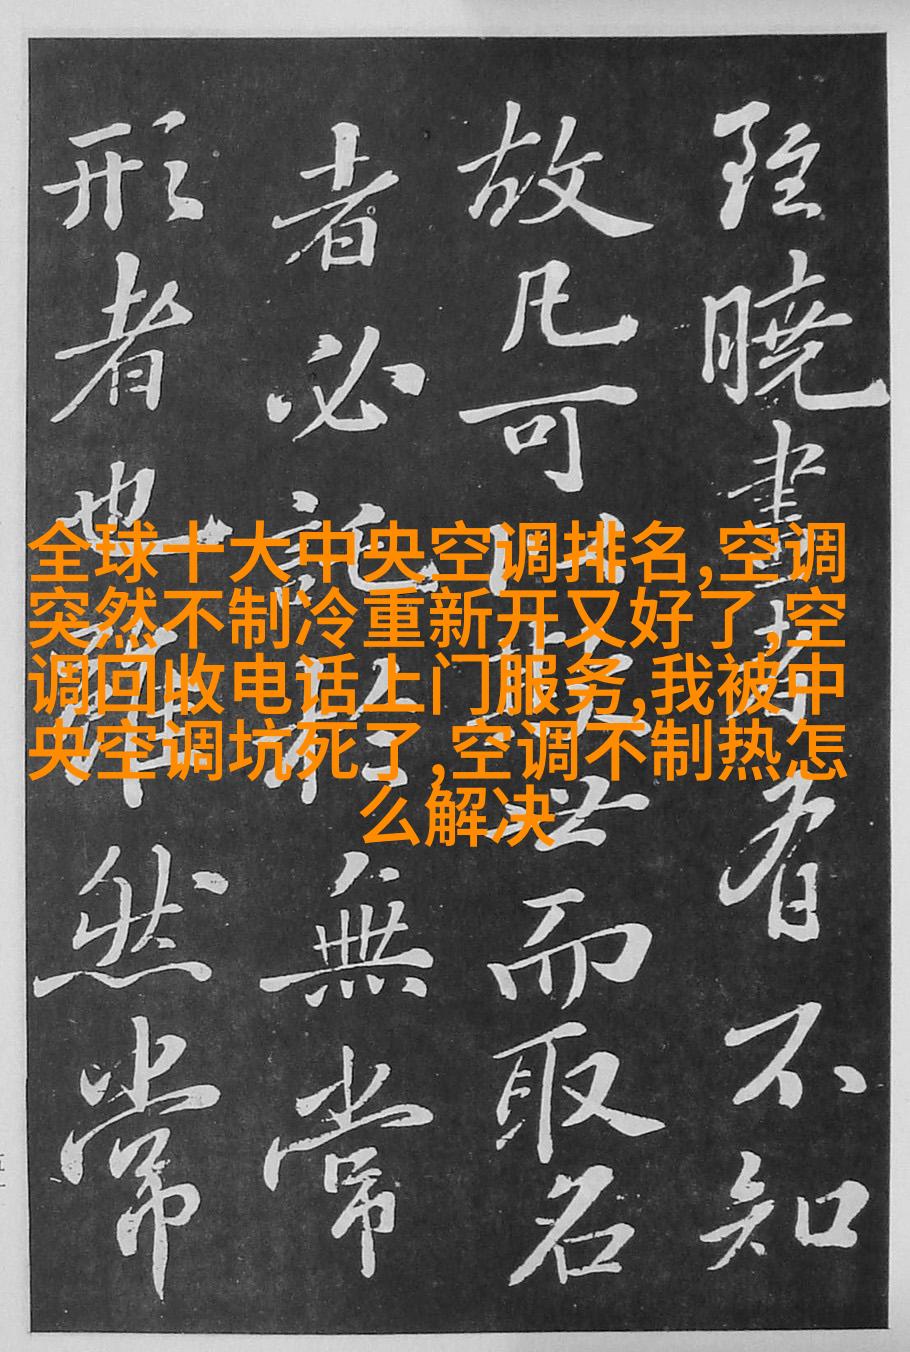 雖曉畫者有不知
故凡可以欺世而取名
者必託於無常
形者也雖然常
全球十大中央空调排名,空调
突然不制冷重新开又好了,空
调回收电话上门服务,我被中
央空调坑死了,空调不制热怎
么解决